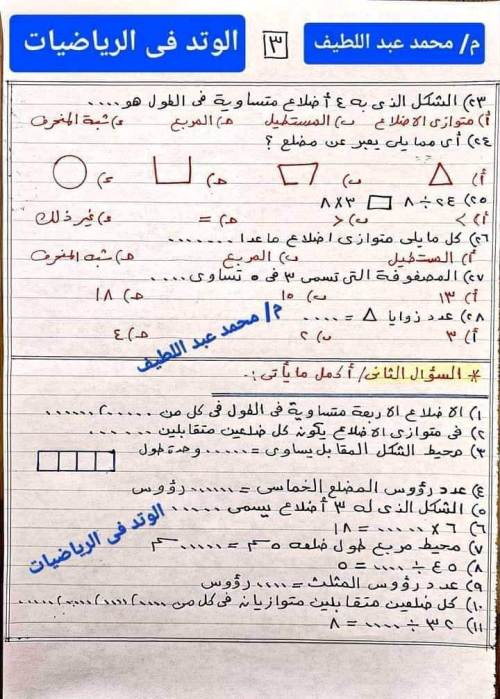 م/ محمد عبد اللطيف ٣ الوتد فى الرياضيات
٢٣) الشكل الذى به ٤ أضلاع متساوية فى الطول هو ....
أ) متوازى الاضلاع ب) المستطيل حـ) المربع ء) شبة المنحرف
٢٤) أى مما يلى يعبر عن مضلع ؟
أ) ب) حـ) ء)
٢٥) ٢٤ ÷ ٨ ٣ × ٨
أ) > ب) < حـ) = ء) غير ذلك
٢٦) كل مايلى متوازى اضلاع ماعدا .......
أ) المستطيل ب) المربع حـ) شبه المنحرف
٢٧) المصفوفة التى تسمى ٣ فى ٥ تساوى ....
أ) ١٣ ب) ١٥ حـ) ١٨
٢٨) عدد زوايا △ = ....
أ) ٣ ب) ٢ حـ) ٤
م/ محمد عبد اللطيف
* السؤال الثانى / أكمل ما يأتى :.
١) الاضلاع الاربعة متساوية فى الطول فى كل من ...... ، ......
٢) فى متوازى الاضلاع يكون كل ضلعين متقابلين ......
٣) محيط الشكل المقابل يساوى = ..... وحدة طول
٤) عدد رؤوس المضلع الخماسى = ...... رؤوس
٥) الشكل الذى له ٣ أضلاع يسمى .....
٦) ٦ × ...... = ١٨
٧) محيط مربع طول ضلعه ٥سم = ..... سم
٨) ٤٥ ÷ .... = ٥
٩) عدد رؤوس المثلث = .... رؤوس
١٠) كل ضلعين متقابلين متوازيان فى كل من .... ، .... ، .... ، ....
١١) ٣٢ ÷ .... = ٨
الوتد فى الرياضيات